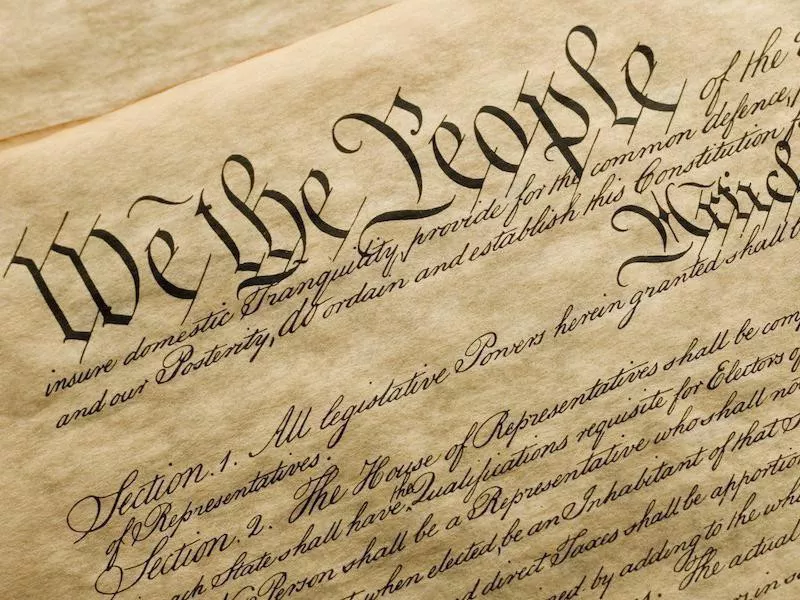 We the People of the
insure domestic Tranquility, provide for the common defence,
and our Posterity, do ordain and establish this Constitution
Section. 1. All legislative Powers herein granted shall
of Representatives.
Section. 2. The House of Representatives shall be com
State shall have the Qualifications requisite for Electors of
Person shall be a Representative who shall not
when elected, be an Inhabitant of that
direct Taxes shall be apportion
by adding to the who
The actual